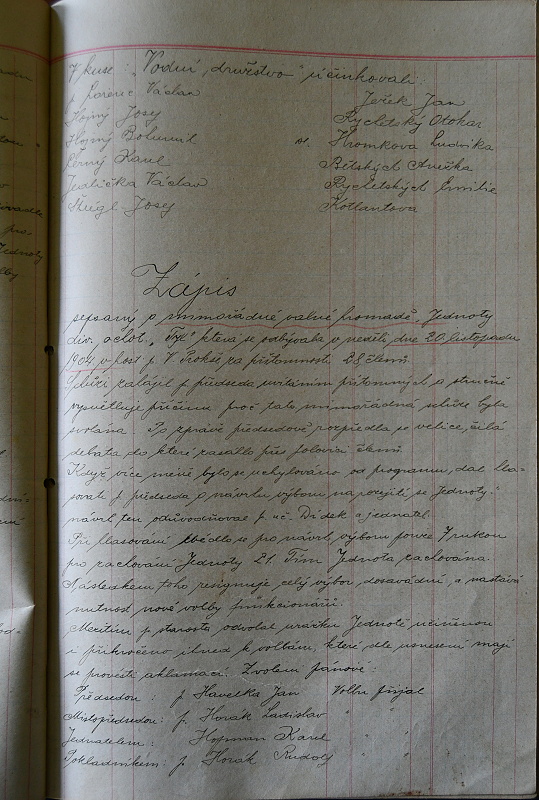 V kuse: „Vodní družstvo" účinkovali:
p. Lorenc Václav
Ježek Jan
Hojný Josef
Rychetský Otokar
Hojný Bohumil
sl. Hromkova Ludvika
Černý Karel
Bělských Anežka
Jedlička Václav
Rychetských Emilie
Meigl Josef
Kotlantova
Zápis
sepsaný o mimořádné valné hromadě, Jednoty
div. ochot. „Tyl" která se odbývala v neděli, dne 20. listopadu
1904 v host. p. V. Prokše za přítomnosti 28 členů.
Schůzi zahájil p. předseda uvítáním přítomných a stručně
vysvětluje příčinu proč tato mimořádná schůze byla
svolána. Po zprávě předsedově rozpředla se velice čilá
debata do které zasáhlo přes polovici členů.
Když více méně bylo se uchylováno od programu, dal hla-
sovati p. předseda o návrhu výboru na rozejití se Jednoty.
návrh ten odůvodňovae p. uč. Dídek a jednatel.
Při hlasování zvedlo se pro návrh výboru pouze 7 rukou
pro zachování Jednoty 21. Tím Jednota zachována.
Následkem toho resignuje celý výbor dosavádní, a nastává
nutnost nové volby funkcionářů.
Mezitím p. starosta odvolal urážku Jednotě učiněnou
i přikročeno ihned k volbám, které dle usnesení mají
se provésti aklamací. Zvoleni pánové:
Předsedou: p. Havelka Jan Volbu přijal
Místopředsedou: p. Horák Ladislav " "
Jednatelem: Hofman Karel " "
Pokladníkem: p. Horák Rudolf " "